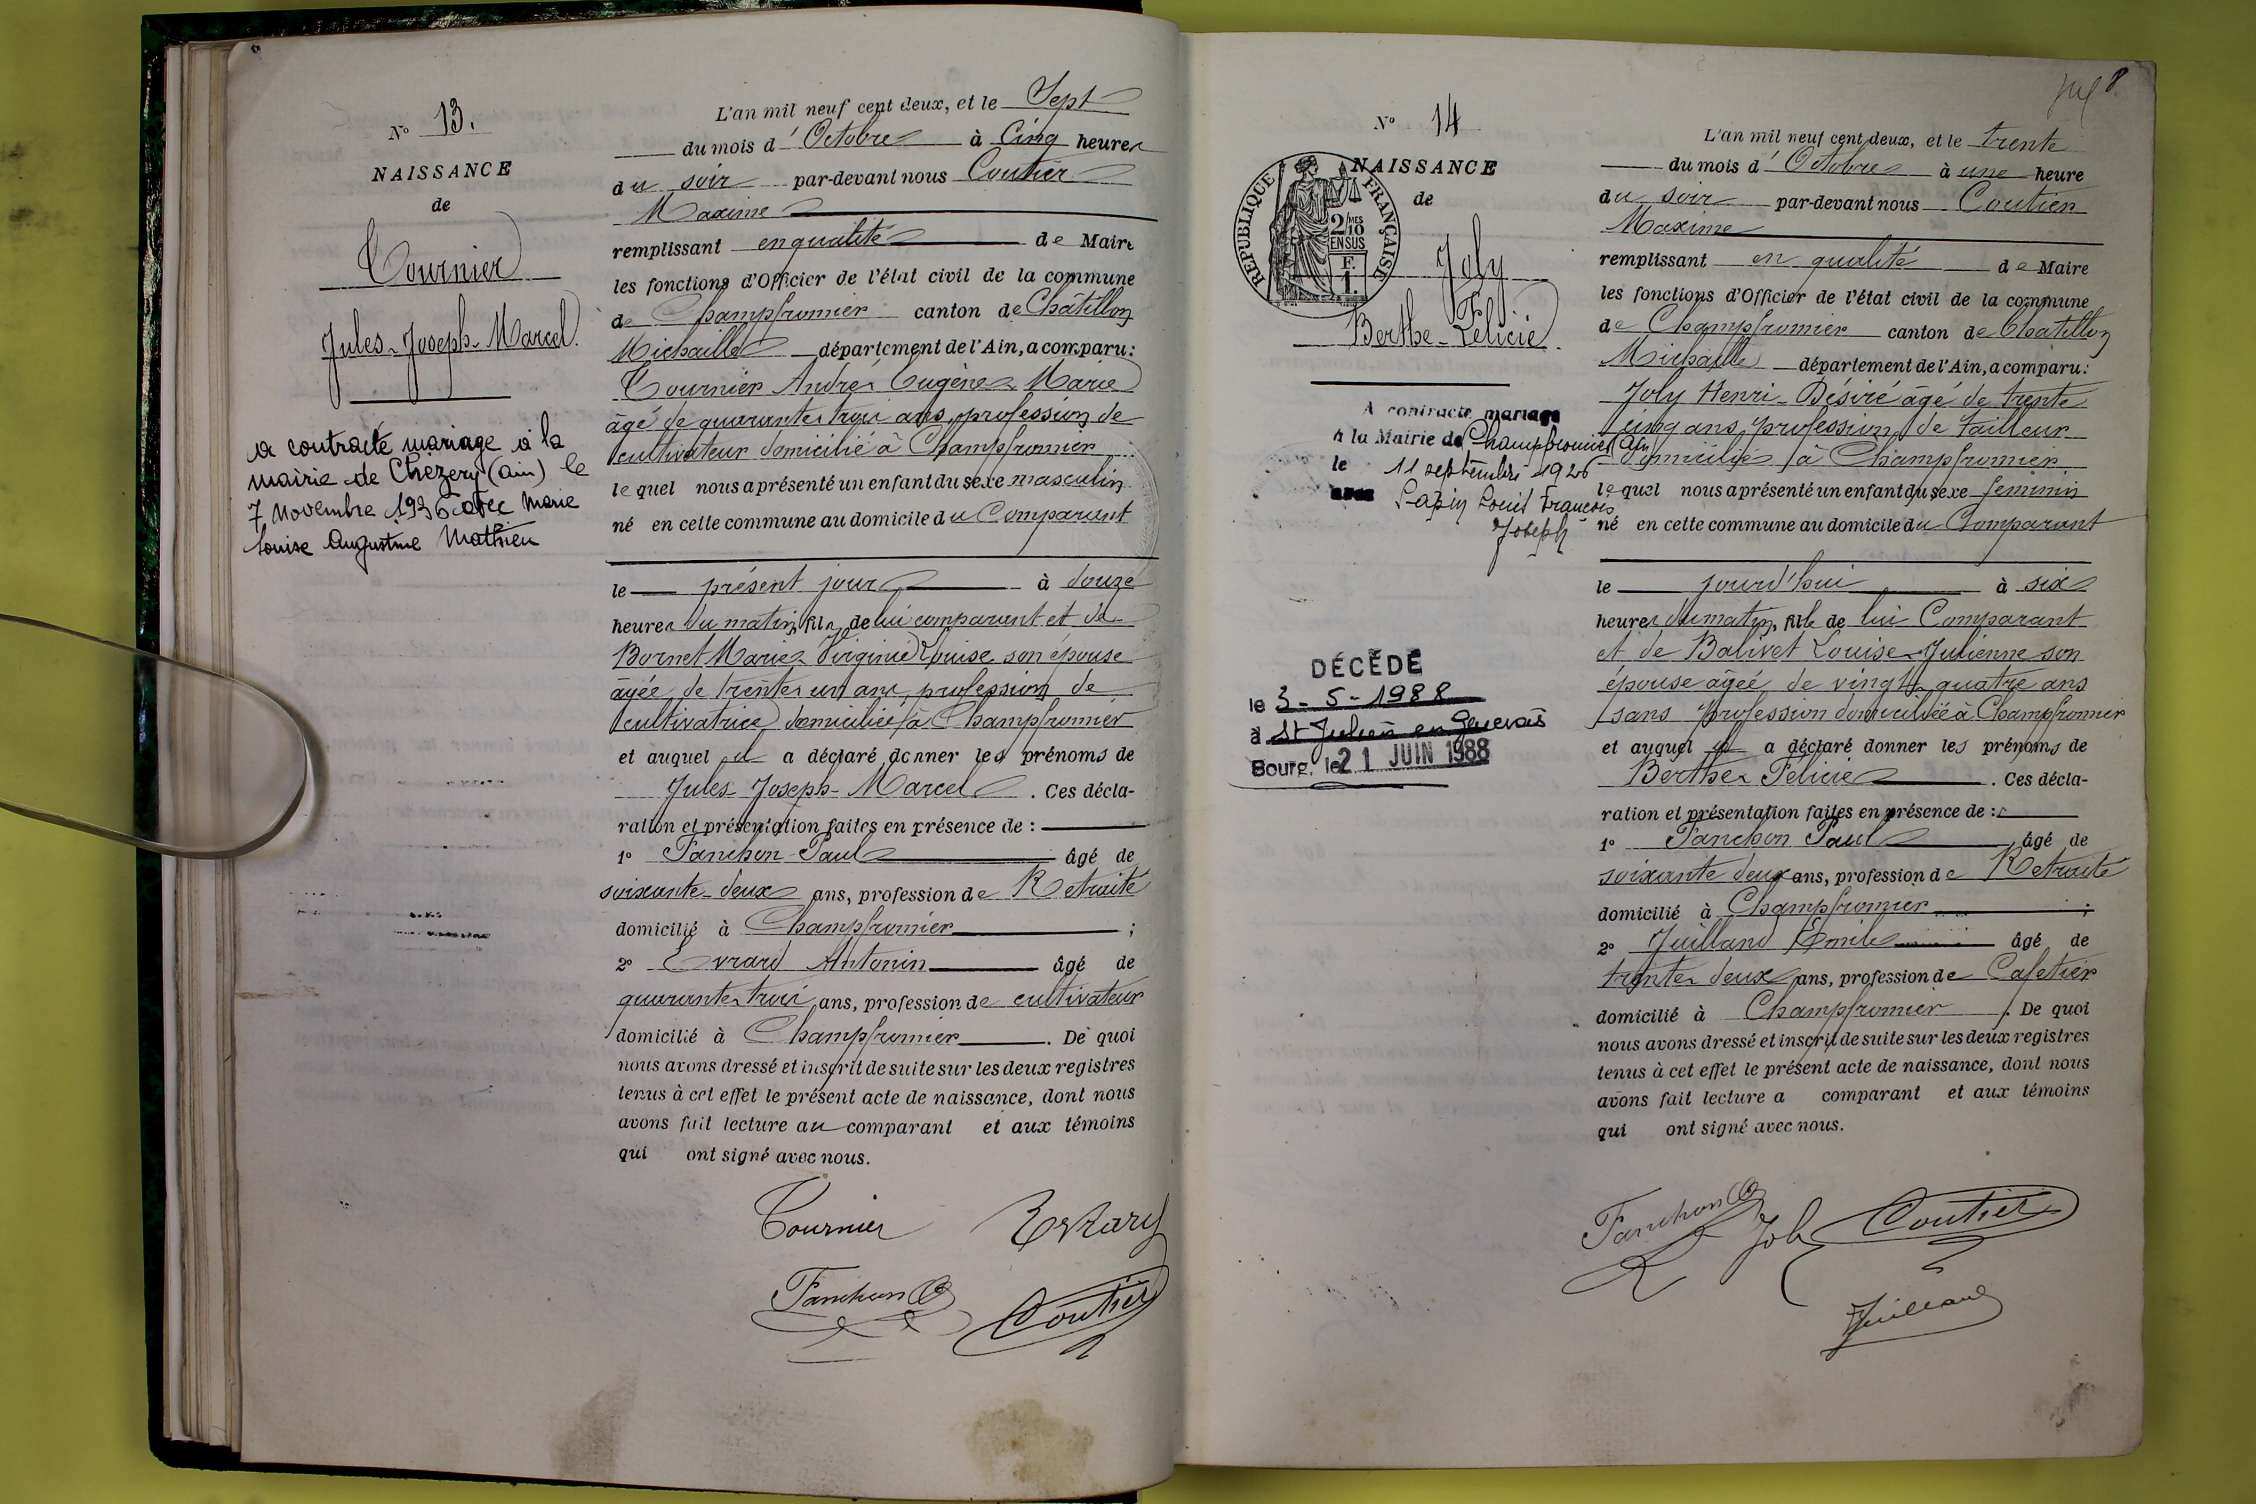 N° 13.
NAISSANCE
de
Tournier
Jules-Joseph-Marcel.
a contracté mariage à la
mairie de Chézery (Ain) le
7 Novembre 1936 avec Marie
Louise Augustine Mathieu
L'an mil neuf cent deux, et le Sept
du mois d'Octobre à Cinq heures
du soir par-devant nous Coutier
Maxime
remplissant en qualité de Maire
les fonctions d'Officier de l'état civil de la commune
de Champfromier canton de Châtillon
Michaille département de l'Ain, a comparu:
Tournier André Eugène Marie
âgé de quarante trois ans, profession de
cultivateur domicilié à Champfromier
lequel nous a présenté un enfant du sexe masculin
né en cette commune au domicile du Comparant
le présent jour à douze
heures du matin, fils de lui comparant et de
Bornet Marie Virginie Louise son épouse
âgée de trente un ans, profession de
cultivatrice domiciliée à Champfromier
et auquel il a déclaré donner les prénoms de
Jules-Joseph-Marcel. Ces décla-
ration et présentation faites en présence de :
1° Fanchon Paul âgé de
soixante-deux ans, profession de Retraité
domicilié à Champfromier ;
2° Evrard Antonin âgé de
quarante trois ans, profession de cultivateur
domicilié à Champfromier. De quoi
nous avons dressé et inscrit de suite sur les deux registres
tenus à cet effet le présent acte de naissance, dont nous
avons fait lecture au comparant et aux témoins
qui ont signé avec nous.
Tournier Evrard
Fanchon Coutier
8
N° 14
NAISSANCE
de
RÉPUBLIQUE FRANÇAISE
2/10 MES
EN SUS
F.
1.
Joly
Berthe-Félicie.
A contracté mariage
à la Mairie de Champfromier (Ain)
le 11 septembre 1926
avec Lapin Louis François
Joseph
DÉCÉDÉ
le 3-5-1988
à St Julien en Genevois
Bourg, le 21 JUIN 1988
L'an mil neuf cent deux, et le trente
du mois d'Octobre à une heure
du soir par-devant nous Coutier
Maxime
remplissant en qualité de Maire
les fonctions d'Officier de l'état civil de la commune
de Champfromier canton de Châtillon
Michaille département de l'Ain, a comparu:
Joly Henri-Désiré âgé de trente
cinq ans, profession de tailleur
domicilié à Champfromier
lequel nous a présenté un enfant du sexe feminin
né en cette commune au domicile du Comparant
le jourd'hui à six
heures du matin, fille de lui Comparant
et de Balivet Louise-Julienne son
épouse âgée de vingt-quatre ans
sans profession domiciliée à Champfromier
et auquel il a déclaré donner les prénoms de
Berthe Félicie. Ces décla-
ration et présentation faites en présence de :
1° Fanchon Paul âgé de
soixante deux ans, profession de Retraité
domicilié à Champfromier ;
2° Juilland Emile âgé de
trente deux ans, profession de Cafetier
domicilié à Champfromier. De quoi
nous avons dressé et inscrit de suite sur les deux registres
tenus à cet effet le présent acte de naissance, dont nous
avons fait lecture a comparant et aux témoins
qui ont signé avec nous.
Fanchon Joly Coutier
Juilland